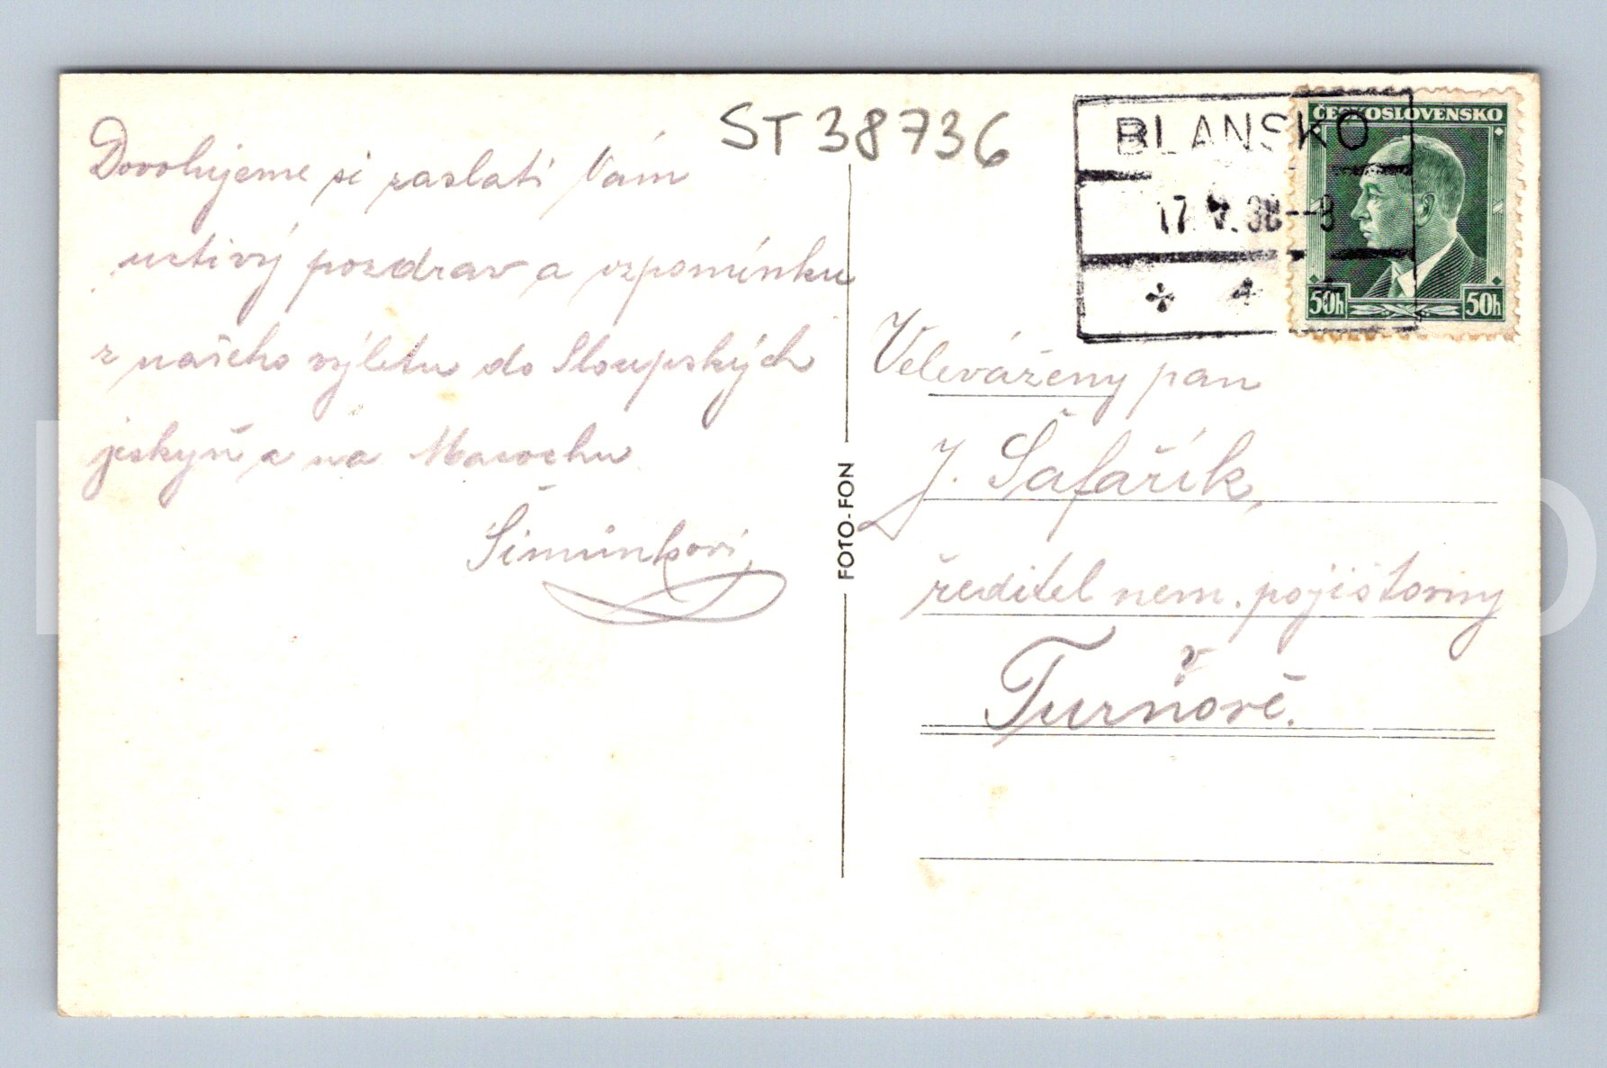 ST 38736
BLANSKO
17.V.38--8
* 4 *
ČESKOSLOVENSKO
50h 50h
Dovolujeme si zaslati Vám
uctivý pozdrav a vzpomínku
z našeho výletu do Sloupských
jeskyň a na Macochu
Šimůnkovi
FOTO-FON
Velevážený pan
J. Šafařík,
ředitel nem. pojišťovny
v
Turnově.